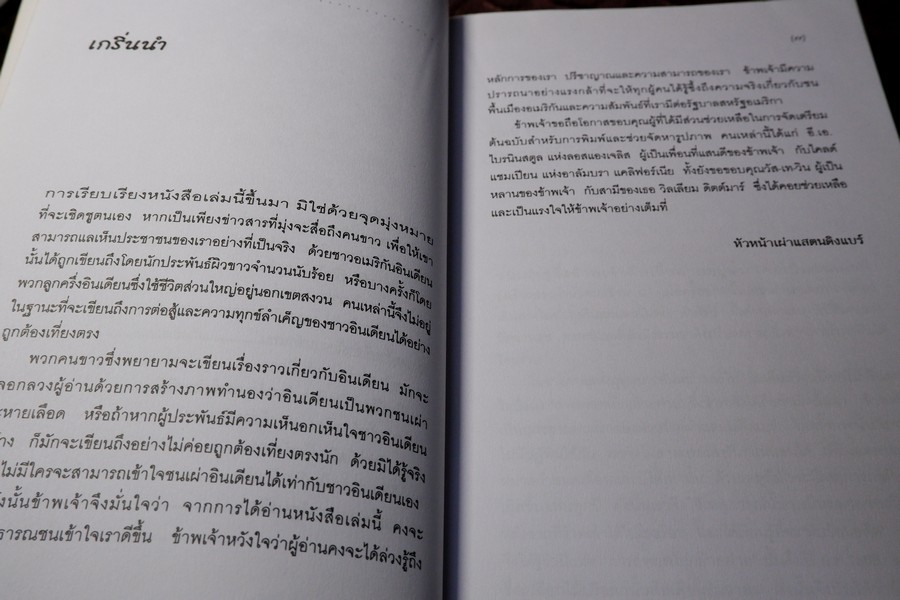 เกริ่นนำ
การเรียบเรียงหนังสือเล่มนี้ขึ้นมา มิใช่ด้วยจุดมุ่งหมาย
ที่จะเชิดชูตนเอง หากเป็นเพียงข่าวสารที่มุ่งจะสื่อถึงคนขาว เพื่อให้เขา
สามารถแลเห็นประชาชนของเราอย่างที่เป็นจริง ด้วยชาวอเมริกันอินเดียน
นั้นได้ถูกเขียนถึงโดยนักประพันธ์ผิวขาวจำนวนนับร้อย หรือบางครั้งก็โดย
พวกลูกครึ่งอินเดียนซึ่งใช้ชีวิตส่วนใหญ่อยู่นอกเขตสงวน คนเหล่านี้จึงไม่อยู่
ในฐานะที่จะเขียนถึงการต่อสู้และความทุกข์ลำเค็ญของชาวอินเดียนได้อย่าง
ถูกต้องเที่ยงตรง
พวกคนขาวซึ่งพยายามจะเขียนเรื่องราวเกี่ยวกับอินเดียน มักจะ
ลอกลวงผู้อ่านด้วยการสร้างภาพทำนองว่าอินเดียนเป็นพวกชนเผ่า
ะหายเลือด หรือถ้าหากผู้ประพันธ์มีความเห็นอกเห็นใจชาวอินเดียน
ก็มักจะเขียนถึงอย่างไม่ค่อยถูกต้องเที่ยงตรงนัก ด้วยมิได้รู้จริง
ไม่มีใครจะสามารถเข้าใจชนเผ่าอินเดียนได้เท่ากับชาวอินเดียนเอง
ังนั้นข้าพเจ้าจึงมั่นใจว่า จากการได้อ่านหนังสือเล่มนี้ คงจะ
ารณชนเข้าใจเราดีขึ้น ข้าพเจ้าหวังใจว่าผู้อ่านคงจะได้ล่วงรู้ถึง
หลักการของเรา ปรีชาญาณและความสามารถของเรา ข้าพเจ้ามีความ
ปรารถนาอย่างแรงกล้าที่จะให้ทุกผู้คนได้รู้ซึ้งถึงความจริงเกี่ยวกับชน
พื้นเมืองอเมริกันและความสัมพันธ์ที่เรามีต่อรัฐบาลสหรัฐอเมริกา
ข้าพเจ้าขอถือโอกาสขอบคุณผู้ที่ได้มีส่วนช่วยเหลือในการจัดเตรียม
ต้นฉบับสำหรับการพิมพ์และช่วยจัดหารูปภาพ คนเหล่านี้ได้แก่ อี.เอ.
ไบรนินสตูล แห่งลอสแองเจลิส ผู้เป็นเพื่อนที่แสนดีของข้าพเจ้า กับไคลด์
แชมเปียน แห่งอาลัมบรา แคลิฟอร์เนีย ทั้งยังขอขอบคุณวัส-เท-วิน ผู้เป็น
หลานของข้าพเจ้า กับสามีของเธอ วิลเลียม ดิตต์มาร์ ซึ่งได้คอยช่วยเหลือ
และเป็นแรงใจให้ข้าพเจ้าอย่างเต็มที่
หัวหน้าเผ่าแสตนดิงแบร์